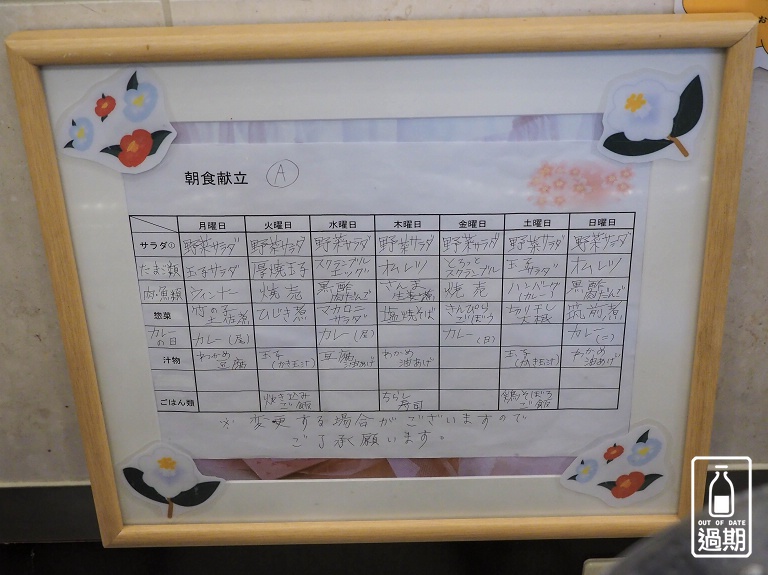 お
朝食献立 Ⓐ
月曜日 火曜日 水曜日 木曜日 金曜日 土曜日 日曜日
サラダ① 野菜サラダ 野菜サラダ 野菜サラダ 野菜サラダ 野菜サラダ 野菜サラダ 野菜サラダ
たまご類 玉子サラダ 厚焼玉子 スクランブルエッグ オムレツ とろっとスクランブル 玉子サラダ オムレツ
肉・魚類 ウィンナー 焼売 黒酢肉だんご さんま生姜煮 焼売 ハンバーグ(カレー) 黒酢肉だんご
惣菜 竹の子土佐煮 ひじき煮 マカロニサラダ 塩焼そば きんぴらごぼう 切り干し大根 筑前煮
カレーの日 カレー カレー カレー カレー
汁物 わかめ豆腐 玉子(かき玉汁) 豆腐油あげ わかめ油あげ 玉子(かき玉汁) わかめ油あげ
ごはん類 焼き込みご飯 ちらし寿司 鶏そぼろご飯
※ 変更する場合がございますので
ご了承願います。
OUT OF DATE
過期